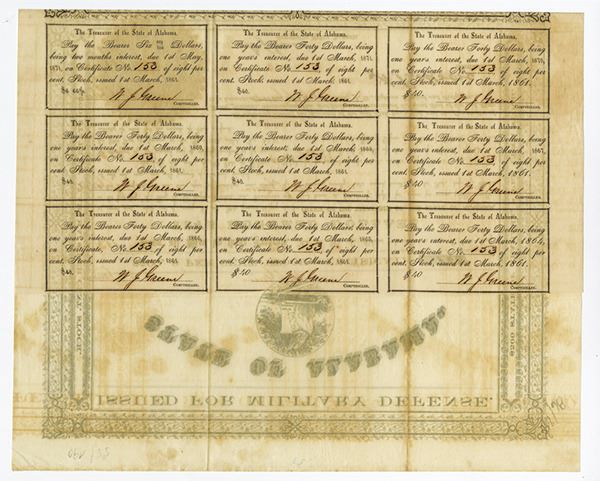 The Treasurer of the State of Alabama,
Pay the Bearer Six 66/100 Dollars,
being two months interest, due 1st May,
1871, on Certificate No. 153 of eight per
cent. Stock, issued 1st March, 1861.
$6 66/100
W J Greene
COMPTROLLER.
The Treasurer of the State of Alabama,
Pay the Bearer Forty Dollars, being
one year's interest, due 1st March, 1871,
on Certificate No. 153 of eight per
cent. Stock, issued 1st March, 1861.
$40.
W J Greene
COMPTROLLER.
The Treasurer of the State of Alabama,
Pay the Bearer Forty Dollars, being
one year's interest, due 1st March, 1870,
on Certificate No. 153 of eight per
cent. Stock, issued 1st March, 1861.
$40.
W J Greene
COMPTROLLER.
The Treasurer of the State of Alabama,
Pay the Bearer Forty Dollars, being
one year's interest, due 1st March, 1869,
on Certificate No. 153 of eight per
cent. Stock, issued 1st March, 1861.
$40.
W J Greene
COMPTROLLER.
The Treasurer of the State of Alabama,
Pay the Bearer Forty Dollars, being
one year's interest, due 1st March, 1868,
on Certificate No. 153 of eight per
cent. Stock, issued 1st March, 1861.
$40.
W J Greene
COMPTROLLER.
The Treasurer of the State of Alabama,
Pay the Bearer Forty Dollars, being
one year's interest, due 1st March, 1867,
on Certificate No. 153 of eight per
cent. Stock, issued 1st March, 1861.
$40
W J Greene
COMPTROLLER.
The Treasurer of the State of Alabama,
Pay the Bearer Forty Dollars, being
one year's interest, due 1st March,
on Certificate No. 153 of eight per
cent. Stock, issued 1st March, 1861.
$40.
W J Greene
COMPTROLLER.
The Treasurer of the State of Alabama,
Pay the Bearer Forty Dollars, being
one year's interest, due 1st March,
on Certificate No. 153 of eight per
cent. Stock, issued 1st March, 1861.
$40
W J Greene
COMPTROLLER.
The Treasurer of the State of Alabama,
Pay the Bearer Forty Dollars, being
one year's interest, due 1st March, 1864,
on Certificate No. 153 of eight per
cent. Stock, issued 1st March, 1861.
$40
W J Greene
COMPTROLLER.
STATE OF ALABAMA,
ISSUED FOR MILITARY DEFENSE.